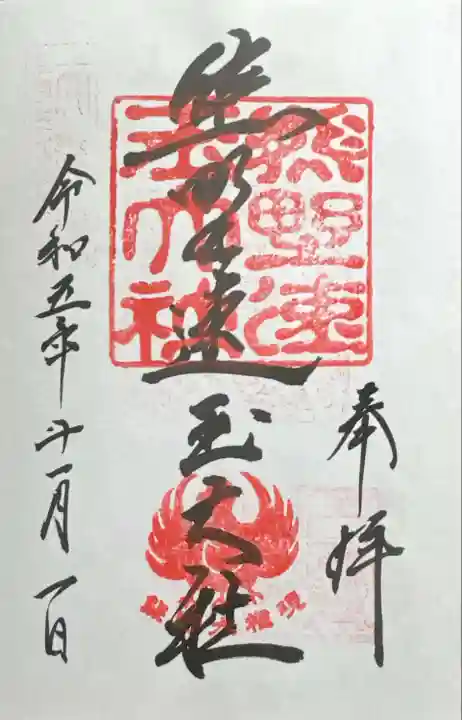 奉拝
熊野速玉大社
熊野速
玉大神
令和五年十一月一日